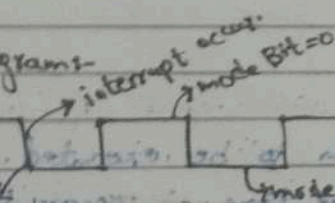 grams:-
interrupt occur.
mode Bit=0
mode